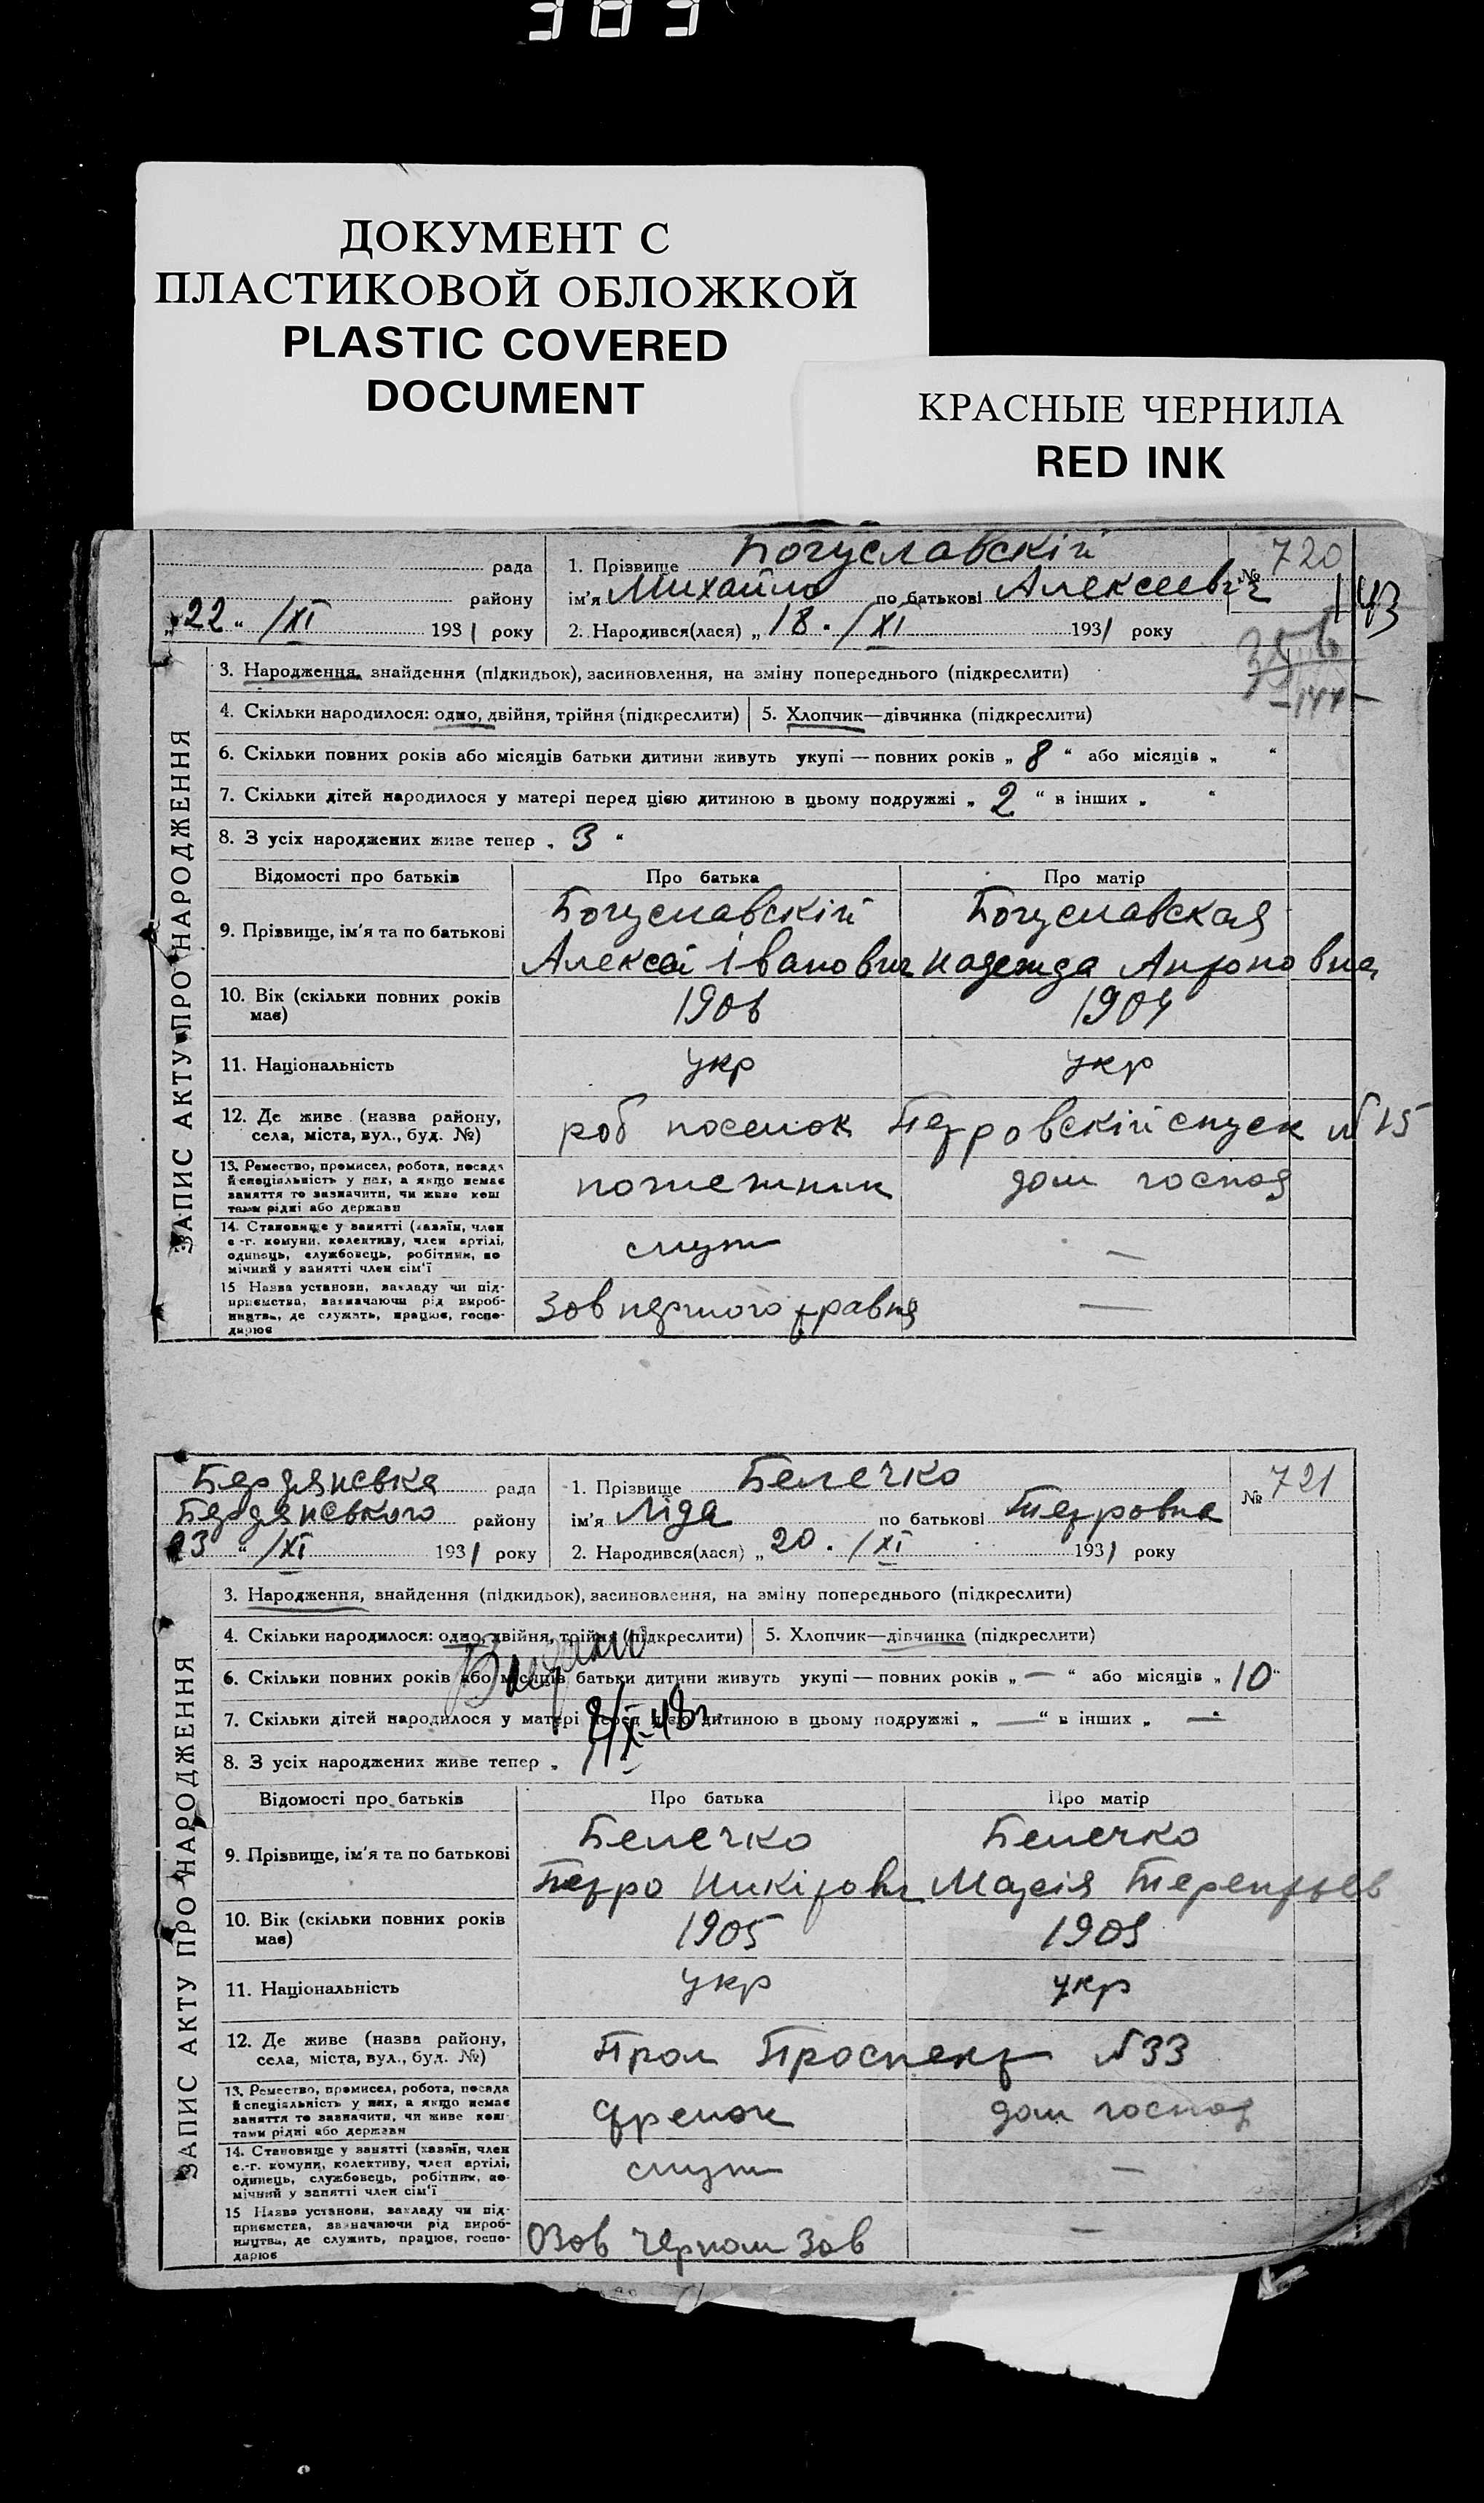 383
ДОКУМЕНТ С
ПЛАСТИКОВОЙ ОБЛОЖКОЙ
PLASTIC COVERED
DOCUMENT
КРАСНЫЕ ЧЕРНИЛА
RED INK
ЗАПИС АКТУ ПРО НАРОДЖЕННЯ
рада
району
„22“ /XI 1931 року
1. Прізвище Богуславскій
ім'я Михайло по батькові Алексеевич
2. Народився(лася) „18. /XI 1931 року
№ 720
143
144
3. Народження, знайдення (підкидьок), засиновлення, на зміну попереднього (підкреслити)
4. Скільки народилося: одно, двійня, трійня (підкреслити) 5. Хлопчик—дівчинка (підкреслити)
6. Скільки повних років або місяців батьки дитини живуть укупі — повних років „ 8 “ або місяців „ “
7. Скільки дітей народилося у матері перед цією дитиною в цьому подружжі „ 2 “ в інших „ “
8. З усіх народжених живе тепер „ 3 “
Відомості про батьків Про батька Про матір
9. Прізвище, ім'я та по батькові
Богуславскій Богуславская
Алексей Іванович Надежда Антоновна
10. Вік (скільки повних років має) 1906 1904
11. Національність укр укр
12. Де живе (назва району, села, міста, вул., буд. №) роб поселок Петровскій спуск №15
13. Ремество, промисел, робота, посада й спеціяльність у них, а якщо немає заняття то зазначити, чи живе коштами рідні або держави
пожежник дом господ
14. Становище у занятті (хазяїн, член с.-г. комуни, колективу, член артілі, одинець, службовець, робітник, помічний у занятті член сім'ї
служ —
15 Назва установи, закладу чи підприємства, зазначаючи рід виробництва, де служить, працює, господарює
Зов першого травня —
ЗАПИС АКТУ ПРО НАРОДЖЕННЯ
Бердянська рада
Бердянського району
23 “ /XI 1931 року
1. Прізвище Белечко
ім'я Ліда по батькові Петровна
2. Народився(лася) „20. /XI 1931 року
№ 721
3. Народження, знайдення (підкидьок), засиновлення, на зміну попереднього (підкреслити)
4. Скільки народилося: одно, двійня, трійня (підкреслити) 5. Хлопчик—дівчинка (підкреслити)
6. Скільки повних років або місяців батьки дитини живуть укупі — повних років „ — “ або місяців „ 10“
7. Скільки дітей народилося у матері перед цією дитиною в цьому подружжі „ — “ в інших „ — “
8. З усіх народжених живе тепер „
Відомості про батьків Про батька Про матір
9. Прізвище, ім'я та по батькові
Белечко Белечко
Петро Никітович Марія Терентьев
10. Вік (скільки повних років має) 1905 1909
11. Національність укр укр
12. Де живе (назва району, села, міста, вул., буд. №) Прол Проспект №33
13. Ремество, промисел, робота, посада й спеціяльність у них, а якщо немає заняття то зазначити, чи живе коштами рідні або держави
дом господ
14. Становище у занятті (хазяїн, член с.-г. комуни, колективу, член артілі, одинець, службовець, робітник, помічний у занятті член сім'ї
служ —
15 Назва установи, закладу чи підприємства, зазначаючи рід виробництва, де служить, працює, господарює
Озов Черном Зов —